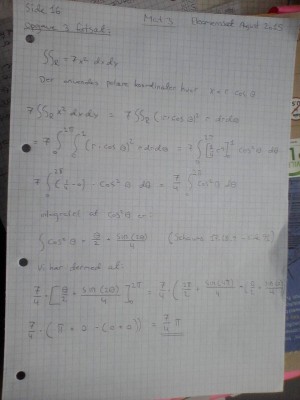 Side 16 Mat 3 Eksamenssæt August 2015
Opgave 3 fortsat:
∬_R = 7x² dx dy
Der anvendes polære koordinater hvor x = r · cos θ
7∬_R x² dx dy = 7∬_R (r · cos θ)² · r dr dθ
= 7 ∫_0^{2π} ∫_0^1 (r · cos θ)² · r dr dθ = 7 ∫_0^{2π} [¼ · r⁴]_0^1 cos² θ dθ
7 ∫_0^{2π} (¼ - 0) · cos² θ dθ = 7/4 ∫_0^{2π} cos² θ dθ
integralet af cos² θ er:
∫ cos² θ = θ/2 + sin(2θ)/4 (Schaums
Vi har dermed at:
7/4 · [θ/2 + sin(2θ)/4]_0^{2π} = 7/4 · (2π/2 + sin(4π)/4 - (0/2 + sin(0)/4
7/4 · (π + 0 - (0 + 0)) = 7/4 π